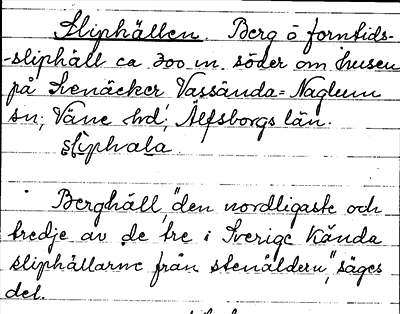 Sliphällen. Berg o forntids-
-sliphäll ca 300 m. söder om husen
på Svenåcker Vassända=Naglum
sn; Väne hd; Älfsborgs län.
slìphala
Berghäll, "den nordligaste och
tredje av de tre i Sverige kända
sliphällarne från stenåldern", säges
det.